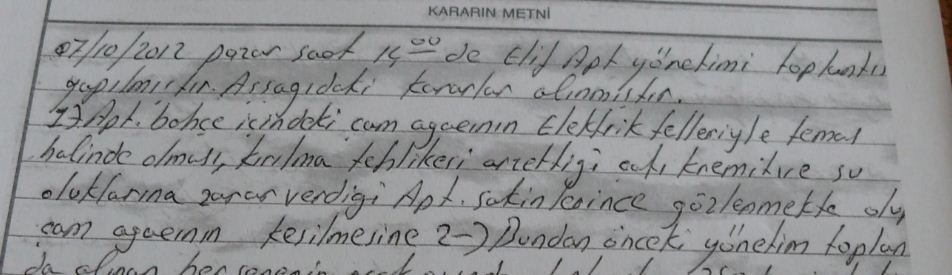 KARARIN METNİ
07/10/2012 pazar saat 14 00 de Elif Apt yönetimi toplantısı
yapılmıştır. Assagıdaki kararlar alınmıştır.
1) Apt. bahçe içindeki çam agacının Elektrik telleriyle temas
halinde olması, kırılma tehlikesi arzettigi çatı kremit ve su
oluklarına zarar verdigi Apt. sakinlerince gözlenmekte olup
çam agacının kesilmesine 2-) Bundan önceki yönetim toplan
da alınan her senenin